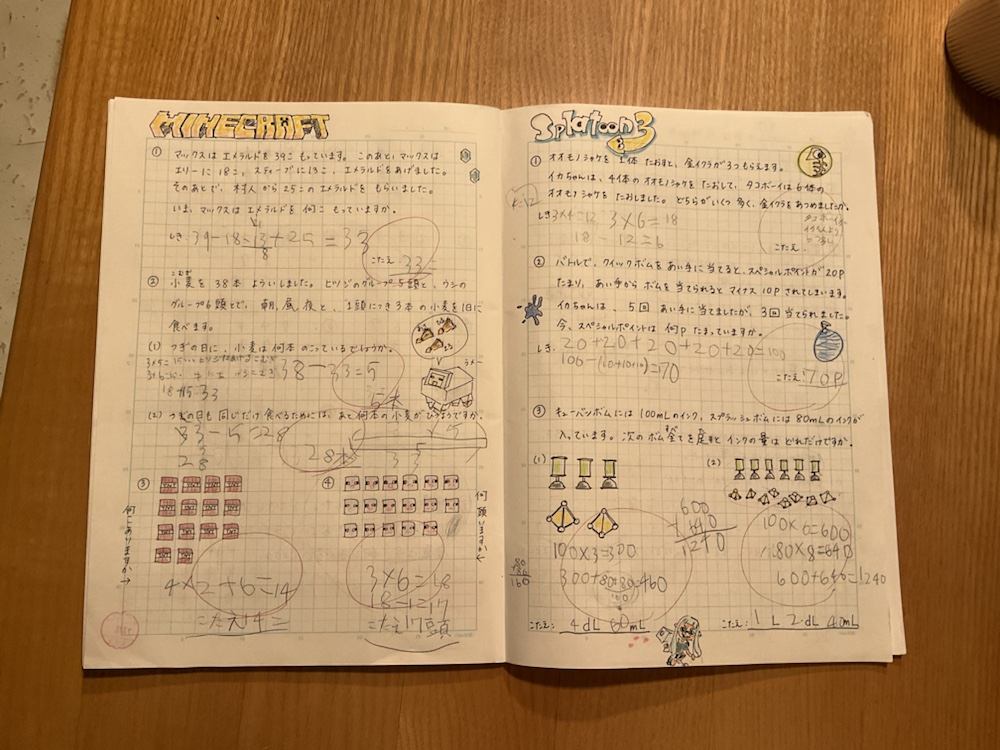 MINECRAFT
① マックスは エメラルドを 39こ もっています。このあと、マックスは
エリーに 18こ、スティーブに13こ、エメラルドをあげました。
そのあとで、村人 から 25こ の エメラルドを もらいました。
いま、マックスは エメラルドを 何こ もっていますか。
しき:39-18-13+25=33
8
こたえ 33こ
② 小麦を 38本 よういしました。ヒツジのグループ5頭と、ウシの
こむぎ
グループ6頭とで、朝、昼、夜と、1頭につき3本の小麦を1日に
食べます。
(1) つぎの日に、小麦は何本のこっているでしょうか。
38-33=5
18+15=33
5本
(2) つぎの日も 同じだけ 食べるためには、あと何本の小麦がひつようですか。
33-5=28
28本
③
TNT TNT TNT TNT
TNT TNT TNT TNT
TNT TNT TNT TNT
TNT TNT
何こありますか→
4×2+6=14
こたえ14こ
④
何頭いますか
3×6=18
18-1=17
こたえ17頭
Splatoon3
① オオモノシャケを 1体 たおすと、金イクラが3つもらえます。
イカちゃんは、4体のオオモノシャケを たおして、タコボーイは6体の
オオモノシャケを たおしました。どちらがいくつ多く、金イクラをあつめましたか。
しき 3×4=12 3×6=18
18-12=6
こたえ
タコボーイが
イカちゃんより
② バトルで、クイックボムを あい手に当てると、スペシャルポイントが20P
たまり、あい手から ボムを 当てられると マイナス 10P されてしまいます。
イカちゃんは、5回 あい手に当てましたが、3回当てられました。
今、スペシャルポイントは 何P たまっていますか。
しき:20+20+20+20+20=100
100-(10+10+10)=70
こたえ 70P
③ キューバンボムには 100mLのインク、スプラッシュボムには 80mLのインクが
入っています。次の ボム全てを 足すと インクの量は どれだけですか。
(1)
100×3=300
80
80
160
300+80+80=460
こたえ: 4dL 60mL
(2)
600
640
1240
100×6=600
80×8=640
600+640=1240
こたえ: 1L 2dL 40mL